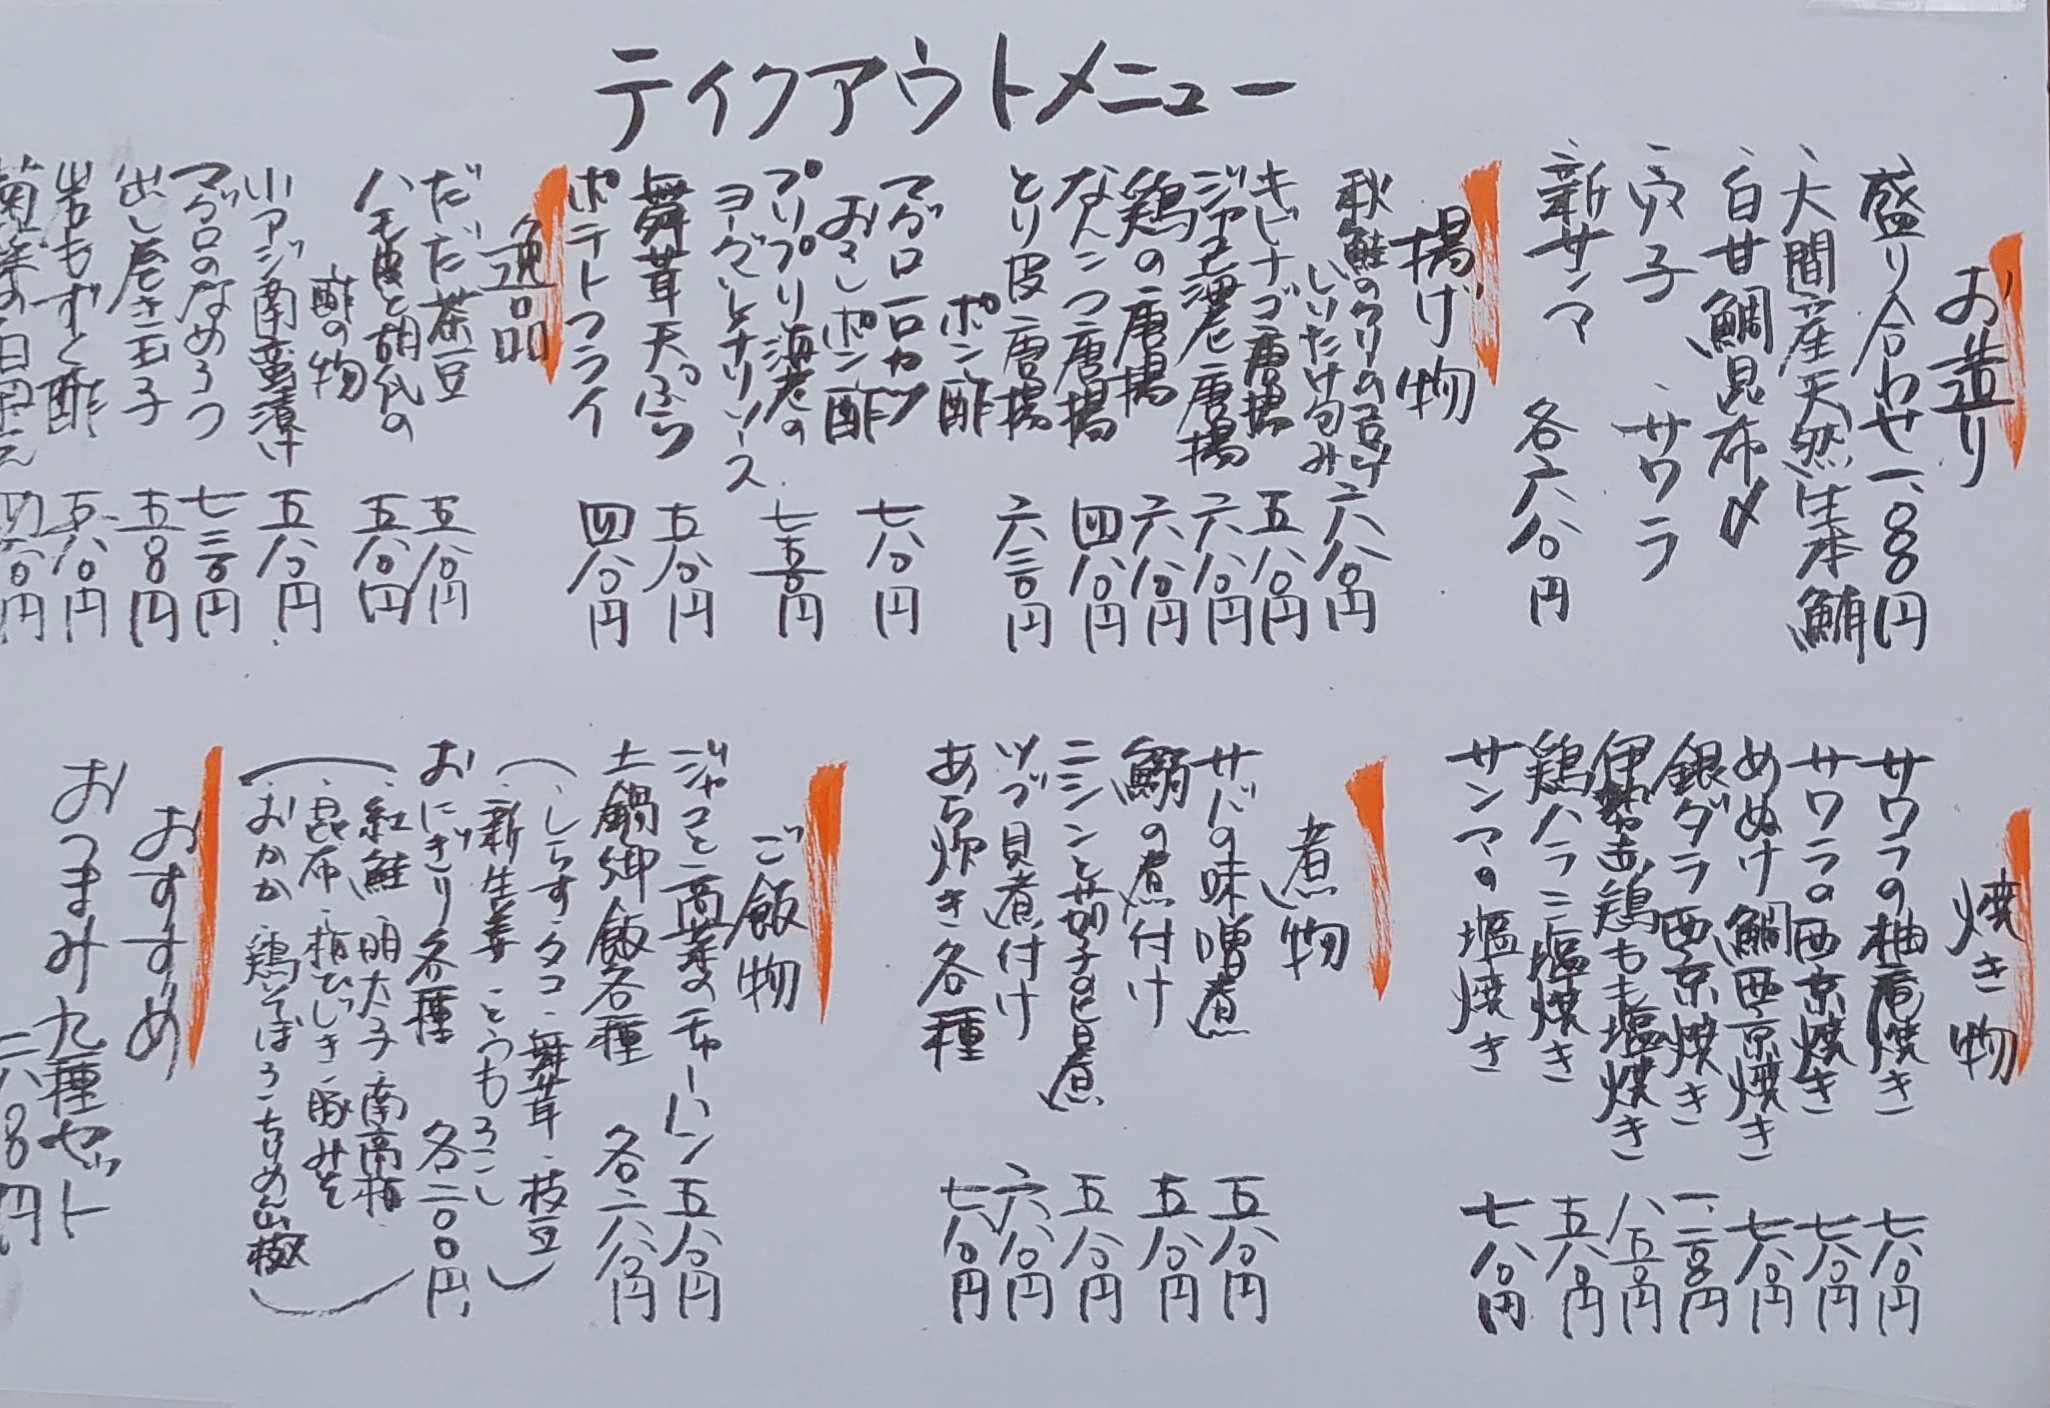 ティクアウトメニュー
お造り
盛り合わせ 一、八〇〇円
、大間産天然生本鮪
、白甘鯛昆布〆
、穴子 、サワラ
、新サンマ 各六八〇円
揚げ物
秋鮭のクリの
しいたけ包み 六八〇円
キビナゴ唐揚 五八〇円
唐揚 六八〇円
鶏の唐揚 六八〇円
なんこつ唐揚 四八〇円
とり皮唐揚
ポン酢 六三〇円
マグロ一口カツ
おろしポン酢 七八〇円
プリプリ海老の
ヨーグルトチリソース 七五〇円
舞茸天ぷら 五八〇円
ポテトフライ 四八〇円
逸品
だだ茶豆 五八〇円
ハモ皮と胡瓜の
酢の物 五八〇円
小アジ南蛮漬け 五八〇円
マグロのなめろう 七三〇円
出し巻き玉子 五八〇円
岩もずく酢 五八〇円
焼き物
サワラの柚庵焼き 七八〇円
サワラの西京焼き 七八〇円
めぬけ鯛西京焼き 七八〇円
銀ダラ西京焼き
伊勢赤鶏もも塩焼き 八五〇円
鶏ハラミ塩焼き 五八〇円
サンマの塩焼き 七八〇円
煮物
サバの味噌煮 五八〇円
鰯の煮付け 五八〇円
ニシンと茄子の旨煮 五八〇円
ツブ貝煮付け 六八〇円
あら炊き各種 七八〇円
ご飯物
ジャコと高菜のチャーハン 五八〇円
土鍋御飯各種 各二八〇円
（、しらす、タコ、舞茸、枝豆
、新生姜、とうもろこし）
おにぎり各種 各二〇〇円
（、紅鮭、明太子、南高梅
、昆布、梅ひじき、豚みそ
、おかか、鶏そぼろ、ちりめん山椒）
おすすめ
おつまみ九種セット